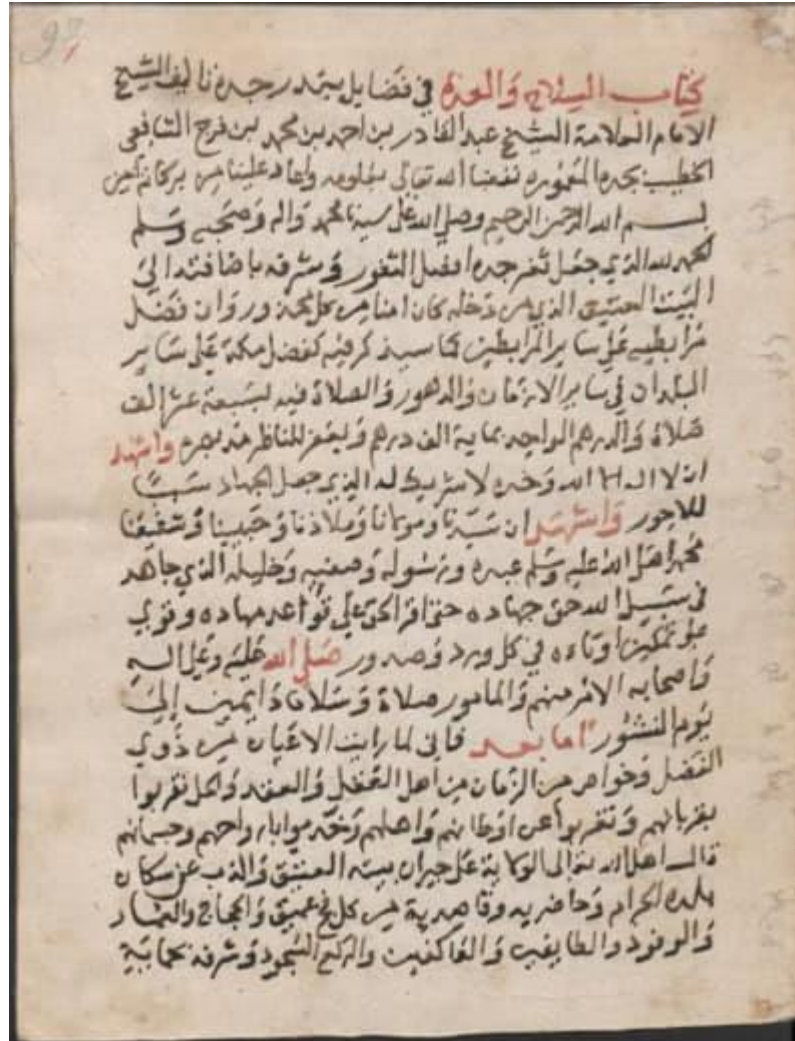 97
كتاب السلاح والعدة في فضايل بندر جده تاليف الشيخ
الامام العلامة الشيخ عبد القادر بن احمد بن محمد بن فرج الشافعي
الخطيب بجده المعموره نفعنا الله تعالى بعلومه واعاد علينا من بركاته امين
بسم الله الرحمن الرحيم وصلي الله علي سيدنا محمد واله وصحبه وسلم
الحمد لله الذي جعل ثغر جده افضل الثغور وشرفه باضافته الي
البيت العتيق الذي من دخله كان امنا من كل محذور وان فضل
مرابطيه علي ساير المرابطين كما سيذكر فيه كفضل مكة علي ساير
البلدان في ساير الازمان والدهور والصلاة فيه بسبعة عشر الف
صلاة والدرهم الواحد بماية الف درهم ويغفر للناظر مد بصره واشهد
ان لا اله الا الله وحده لا شريك له الذي جعل الجهاد سببا
للاجور واشهد ان سيدنا ومولانا وملاذنا وحبيبنا وشفيعنا
محمدا صلي الله عليه وسلم عبده ورسوله وصفيه وخليله الذي جاهد
في سبيل الله حق جهاده حتي اقر الحق علي قواعد مهاده وقوي
علو تمكين اوتاده في كل ورد وصدور صلي الله عليه وعلي اله
واصحابه الامر منهم والمامور صلاة وسلاما دايمين الي
يوم النشور اما بعد فاني لما رايت الاعيان من ذوي
الفضل وخواص من الزمان من اهل العقل والعقد والحل تقربوا
بقرباتهم وتغربوا عن اوطانهم واهلهم وخدموا بارواحهم وجسمانهم
قالت اهل الله تعالى علي جيران بيته العتيق والذب عن سكان
بلده الحرام وحاضريه وقاصديه من كل فج عميق والحجاج والتجار
والوفود والطايفين والعاكفين والركع السجود وشرفه بحماية